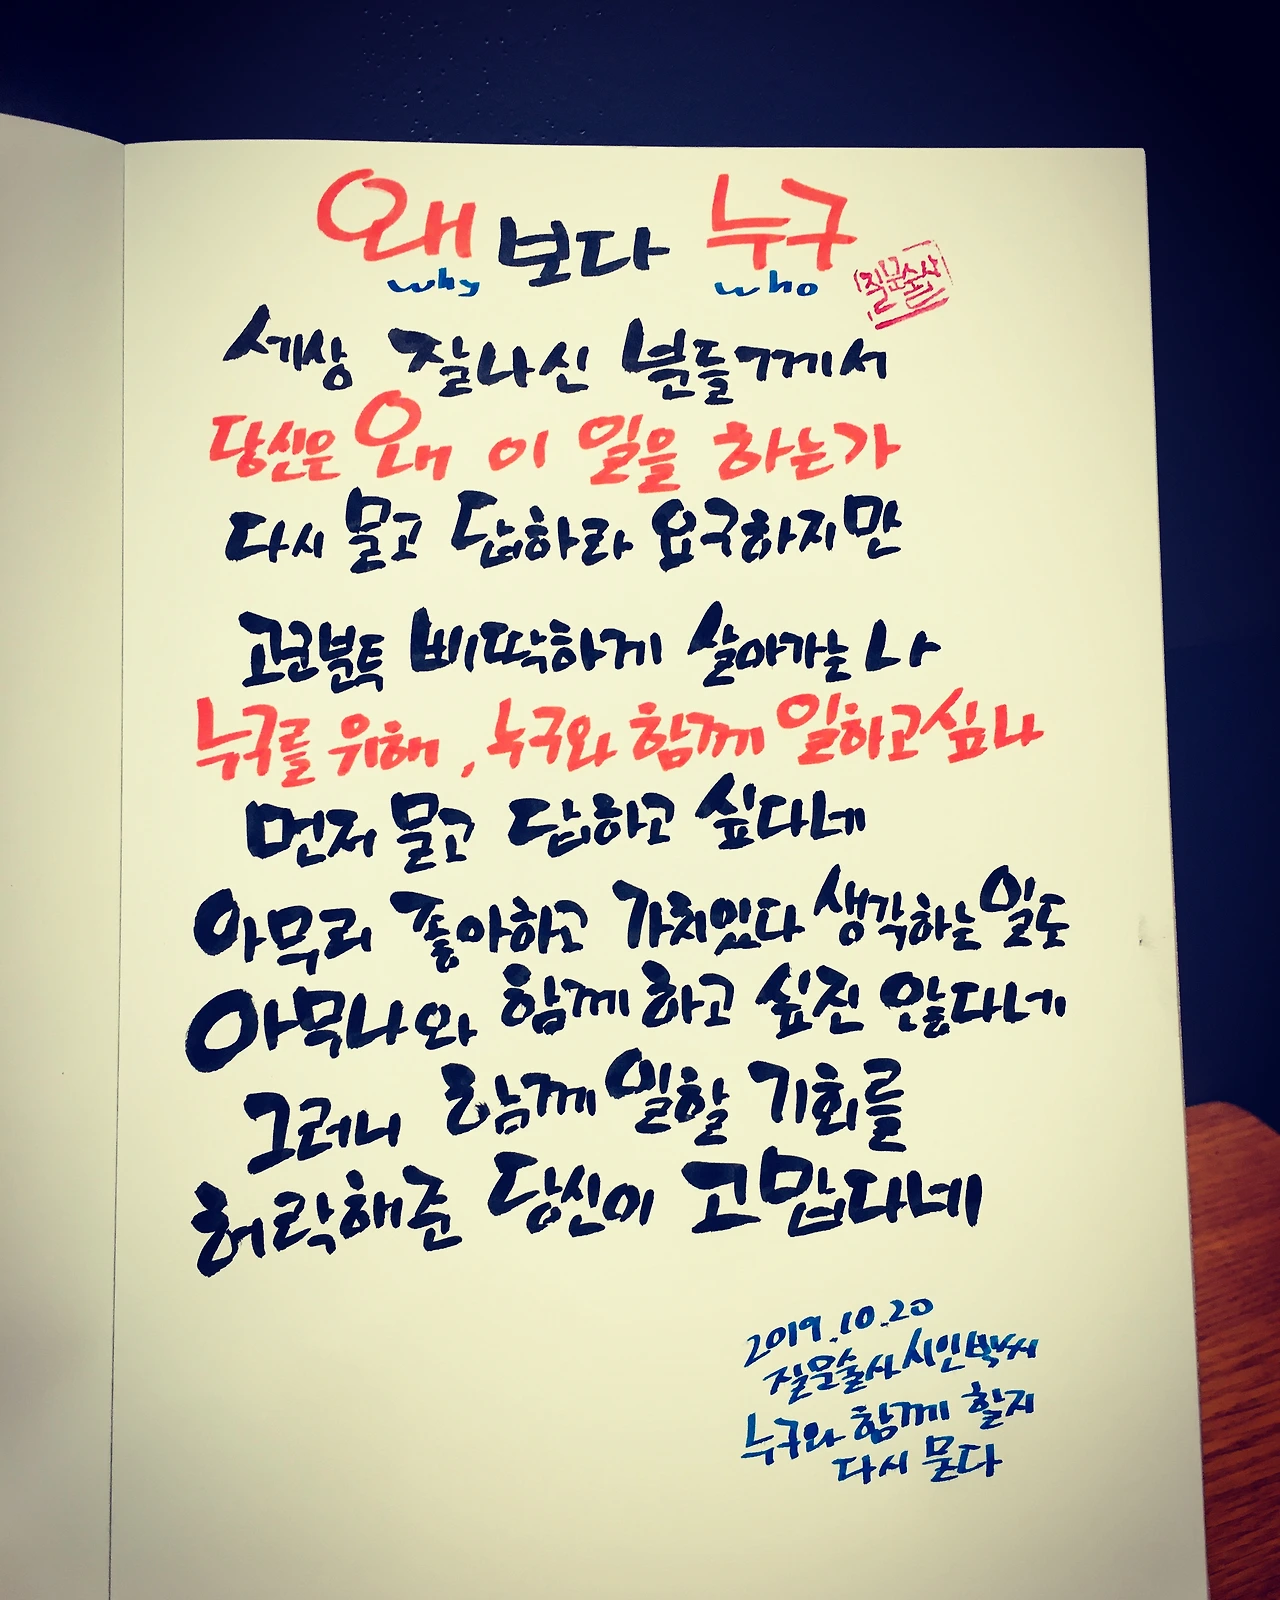 왜 보다 누구
why who
질문술사
세상 잘나신 분들께서
당신은 왜 이 일을 하는가
다시 묻고 답하라 요구하지만
고코분투 삐딱하게 살아가는 나
누구를 위해, 누구와 함께 일하고싶나
먼저 묻고 답하고 싶다네
아무리 좋아하고 가치있다 생각하는 일도
아무나와 함께 하고 싶진 않다네
그러니 함께 일할 기회를
허락해준 당신이 고맙다네
2019.10.20
질문술사 시인박씨
누구와 함께 할지
다시 묻다